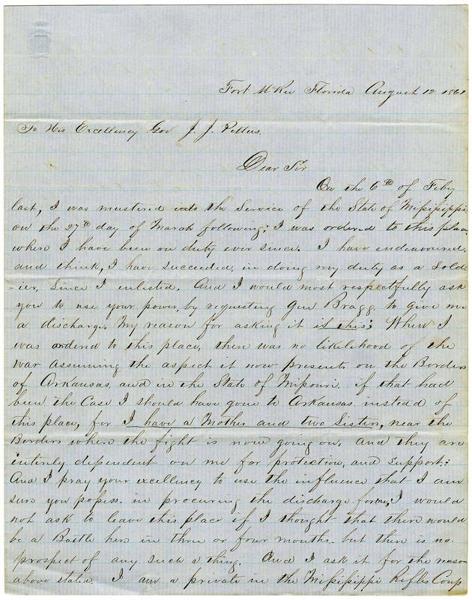 Fort McRee Florida August 12 1861
To His Excellency Gov J. J. Pettus
Dear Sir
On the 6th of Feby
last, I was mustered into the Service of the State of Missippi
on the 27th day of March following; I was ordered to this place
where I have been on duty ever since. I have endeavoured
and think, I have succeeded, in doing my duty as a Sold-
-ier, Since I enlisted. And I would most respectfully ask
you to use your power, by requesting Gen Bragg to give me
a discharge. My reason for asking it is this; When I
was ordered to this place, there was no likelihood of the
war assuming the aspect it now presents on the Borders
of Arkansas, and in the State of Missouri. if that had
been the Case I should have gone to Arkansas instead of
this place, for I have a Mother and two Sisters, near the
Borders where the fight is now going on. And they are
entirely dependent on me for protection, and Support;
And I pray your excellency to use the influence that I am
sure you possess, in procuring the discharge for me; I would
not ask to leave this place if I thought that there would
be a Battle here in three or four months. but there is no
prospect of any such a thing. And I ask it for the reason
above stated. I am a private in the Missippippi Rifle Comp